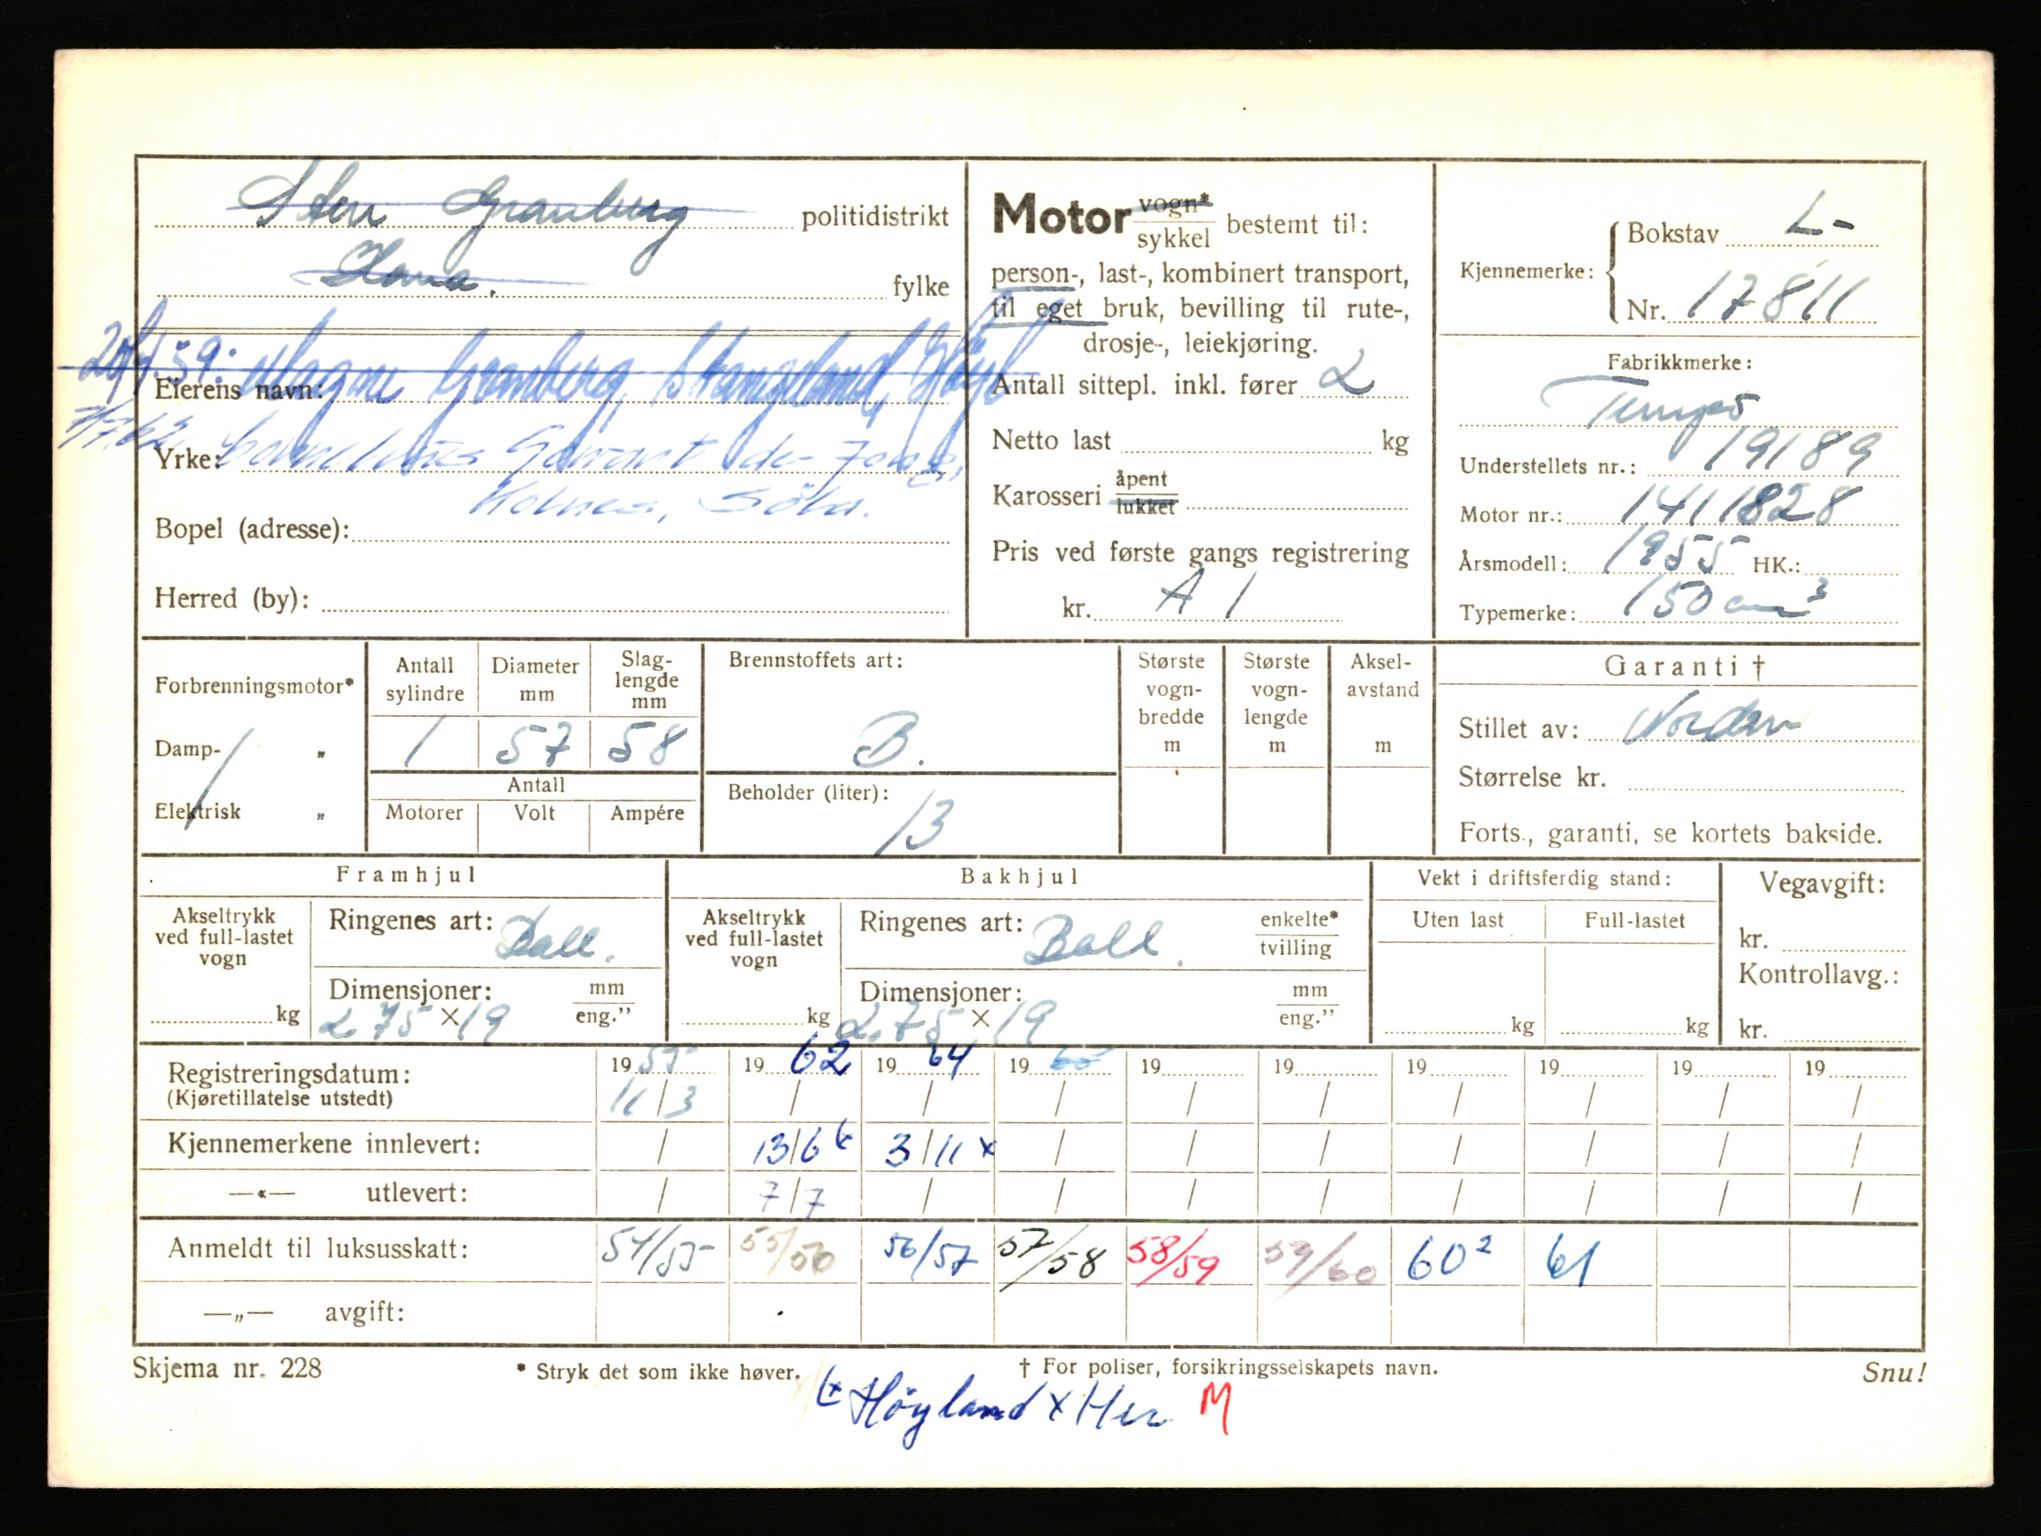 Sten Granberg politidistrikt
Hana. fylke
59: Magne Granberg, Stangeland, Høyl
Eierens navn:
7/7.62. Cornelius Garvort de Jong,
Yrke:
Kolnes, Sola.
Bopel (adresse):
Herred (by):
Motor vogn* sykkel bestemt til:
person-, last-, kombinert transport,
til eget bruk, bevilling til rute-,
drosje-, leiekjøring.
Antall sittepl. inkl. fører 2
Netto last kg
Karosseri åpent lukket
Pris ved første gangs registrering
kr. A 1
Kjennemerke: Bokstav L-
Nr. 17811
Fabrikkmerke:
Tempo
Understellets nr.: 19189
Motor nr.: 1411828
Årsmodell: 1955 HK.:
Typemerke: 150 cm³
Forbrenningsmotor*
Damp- „
Elektrisk „
Antall sylindre
Diameter mm
Slag-lengde mm
1 57 58
Antall
Motorer Volt Ampére
Brennstoffets art:
B.
Beholder (liter):
13
Største vogn-bredde m
Største vogn-lengde m
Aksel-avstand m
Garanti †
Stillet av: Norden
Størrelse kr.
Forts., garanti, se kortets bakside.
Framhjul
Akseltrykk ved full-lastet vogn
kg
Ringenes art: Ball.
Dimensjoner: mm eng.”
2.75 × 19
Bakhjul
Akseltrykk ved full-lastet vogn
kg
Ringenes art: Ball. enkelte* tvilling
Dimensjoner: mm eng.”
2.75 × 19
Vekt i driftsferdig stand:
Uten last Full-lastet
kg kg
Vegavgift:
kr.
Kontrollavg.:
kr.
Registreringsdatum: 19 55 19 62 19 64 19 65 19 19 19 19 19 19
(Kjøretillatelse utstedt) 11/3 / / / / / / / / /
Kjennemerkene innlevert: / 13/6 3/11 x / / / / / / /
—«— utlevert: / 7/7 / / / / / / / /
Anmeldt til luksusskatt: 54/55 55/56 56/57 57/58 58/59 59/60 60² 61
—„— avgift:
Skjema nr. 228 * Stryk det som ikke høver. † For poliser, forsikringsselskapets navn. Snu!
Höyland x Her M